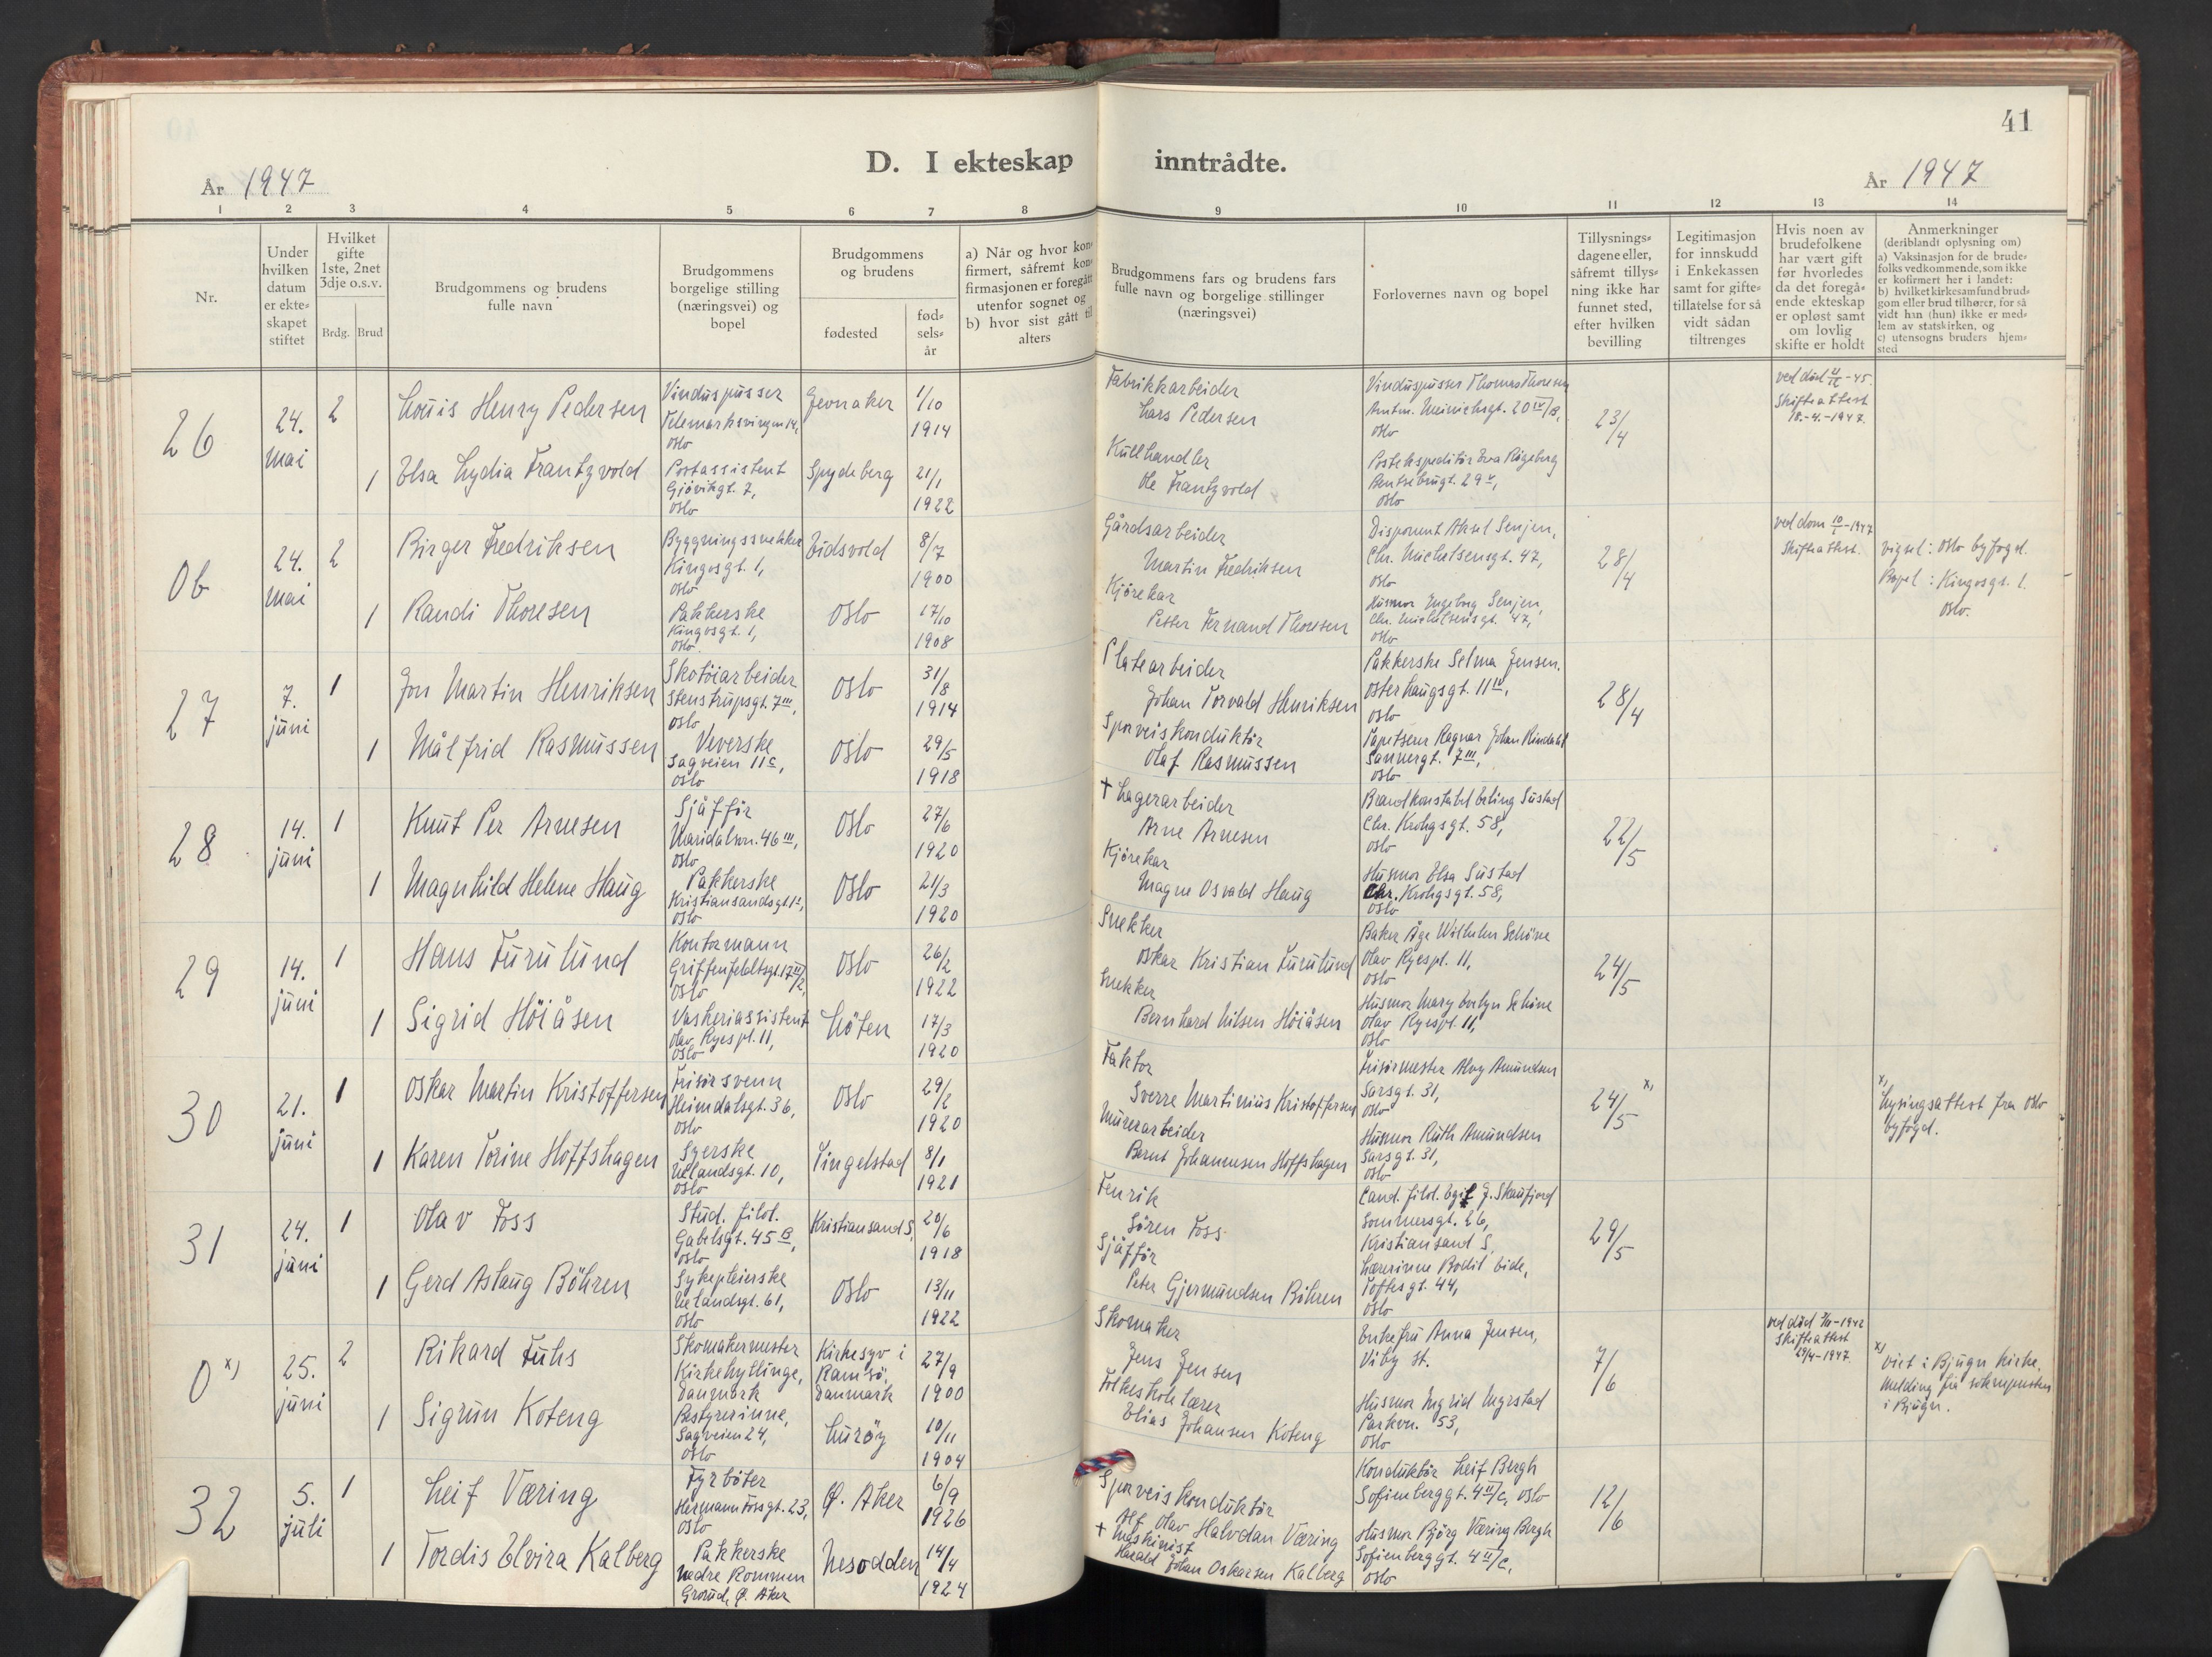 41
D. I ekteskap inntrådte.
År 1947
År 1947
1 2 3 4 5 6 7 8 9 10 11 12 13 14
Nr.
Under
hvilken
datum
er ekte-
skapet
stiftet
Hvilket
gifte
1ste, 2net
3dje o.s.v.
Brdg. Brud
Brudgommens og brudens
fulle navn
Brudgommens
borgelige stilling
(næringsvei) og
bopel
Brudgommens
og brudens
fødested
fød-
sels-
år
a) Når og hvor kon-
firmert, såfremt kon-
firmasjonen er foregått
utenfor sognet og
b) hvor sist gått til
alters
Brudgommens fars og brudens fars
fulle navn og borgelige stillinger
(næringsvei)
Forlovernes navn og bopel
Tillysnings-
dagene eller,
såfremt tillys-
ning ikke har
funnet sted,
efter hvilken
bevilling
Legitimasjon
for innskudd
i Enkekassen
samt for gifte-
tillatelse for så
vidt sådan
tiltrenges
Hvis noen av
brudefolkene
har vært gift
før hvorledes
da det foregå-
ende ekteskap
er opløst samt
om lovlig
skifte er holdt
Anmerkninger
(deriblandt oplysning om)
a) Vaksinasjon for de brude-
folks vedkommende, som ikke
er kofirmert her i landet:
b) hvilket kirkesamfund brud-
gom eller brud tilhører, for så
vidt han (hun) ikke er med-
lem av statskirken, og
c) utensogns bruders hjem-
sted
26
24.
mai
2
Louis Henry Pedersen
Vinduspusser
Telemarksvingen 14,
Oslo
Jevnaker
1/10
1914
Fabrikkarbeider
Lars Pedersen
Vinduspusser Thomas Thoresen
Amtm. Meinichsgt. 20 IV/B,
Oslo
23/4
ved död 4/12-45.
Skifteattest
18.-4.-1947.
1
Elsa Lydia Frantzvold
Postassistent
Gjövikgt. 7,
Oslo
Spydeberg
21/1
1922
Kullhandler
Ole Frantzvold
Postekspeditör Eva Rigeberg
Bentsebrugt. 29 V,
Oslo
0b
24.
mai
2
Birger Fredriksen
Byggningssnekker
Kingosgt. 1,
Oslo
Eidsvold
8/7
1900
Gårdsarbeider
Martin Fredriksen
Disponent Aksel Senjen,
Chr. Michelsensgt. 47,
Oslo
28/4
ved dom
Skifteattest.
Vigsel: Oslo byfogd.
Bopel: Kingosgt. 1.
Oslo.
1
Randi Thoresen
Pakkerske
Kingosgt. 1,
Oslo.
Oslo
17/10
1908
Kjörekar
Petter Fernand Thoresen
Husmor Ingeborg Senjen,
Chr. Michelsensgt. 47,
Oslo
27
7.
juni
1
Jon Martin Henriksen
Skotöiarbeider
Stenstrupsgt. 7 III,
Oslo
Oslo
31/8
1914
Platearbeider
Johan Torvald Henriksen
Pakkerske Selma Jensen.
Osterhaugsgt. 11 IV,
Oslo
28/4
1
Målfrid Rasmussen
Veverske
Sagveien 11 c,
Oslo
Oslo
29/5
1918
Sporveiskonduktör
Olaf Rasmussen
Tapetserer Ragnar Johan Rindahl
Sannergt. 7 III,
Oslo
28
14.
juni
1
Knut Per Arnesen
Sjåfför
Maridalsvn. 46 III,
Oslo
Oslo
27/6
1920
† Lagerarbeider
Arne Arnesen
Brandkonstabel Erling Sustad
Chr. Krohgsgt. 58,
Oslo
22/5
1
Magnhild Helene Haug
Pakkerske
Kristiansandsgt. 1 c,
Oslo
Oslo
21/3
1920
Kjörekar
Magne Osvald Haug
Husmor Elsa Sustad
Chr. Krohgsgt. 58,
Oslo
29
14.
juni
1
Hans Furulund
Kontormann
Griffenfeldtsgt. 17 III/2,
Oslo
Oslo
26/2
1922
Snekker
Oskar Kristian Furulund
Baker Åge Wilhelm Schöne
Olav Ryespl. 11,
Oslo
24/5
1
Sigrid Höiåsen
Vaskeriassistent
Olav Ryes pl. 11,
Oslo
Löten
17/3
1920
Snekker
Bernhard Nilsen Höiåsen
Husmor Mary Evelyn Schöne
Olav Ryespl. 11,
Oslo
30
21.
juni
1
Oskar Martin Kristoffersen
Frisörsvenn
Heimdalsgt. 36,
Oslo
Oslo
29/2
1920
Faktor
Sverre Martinius Kristoffersen
Frisörmester Alvy Amundsen
Sarsgt. 31,
Oslo
24/5 x)
x)
Lysingsattest fra Oslo
byfogd.
1
Karen Torine Hoffshagen
Syerske
Uelandsgt. 10,
Oslo
Tingelstad
8/1
1921
Murerarbeider
Bernt Johannesen Hoffshagen
Husmor Ruth Amundsen
Sarsgt. 31,
Oslo
31
24.
juni
1
Olav Foss
Stud. filol.
Gabelsgt. 45 B,
Oslo
Kristiansand S.
20/6
1918
Fenrik
Sören Foss
Cand. filol. Egil J. Skaufjord
Sommersgt. 26,
Kristiansand S.
29/5
1
Gerd Aslaug Böhren
Sykepleierske
Uelandsgt. 61,
Oslo
Oslo
13/11
1922
Sjåfför
Peter Gjermundsen Böhren
Lærerinne Bodil Eide,
Toftesgt. 44,
Oslo
0 x)
25.
juni
2
Rikard Fuhs
Skomakermester
Kirkehyllinge,
Danmark
Kirkesyv i
Ramsö.
Danmark
27/9
1900
Skomaker
Jens Jensen
Enkefru Anna Jensen,
Viby St.
7/6
ved död
Skifteattest
29/4-1947.
x)
Viet i Bjugn kirke.
Melding fra soknepresten
i Bjugn.
1
Sigrun Koteng
Bestyrerinne,
Sagveien 24,
Oslo
Luröy
10/11
1904
Folkeskolelærer
Elias Johansen Koteng
Husmor Ingrid Myrstad
Parkvn. 53,
Oslo
32
5.
juli
1
Leif Væring
Fyrböter
Hermann Fossgt. 23,
Oslo
Ø. Aker
6/9
1926
Sporveiskonduktör
Alf Olav Halvdan Væring
Konduktör Leif Bergh
Sofienberggt. 4 II/c, Oslo
12/6
1
Tordis Elvira Kalberg
Pakkerske
Nedre Rommen
Grorud, Ø. Aker
Nesodden
14/4
1924
† Maskinist
Harald Johan Oskarsen Kalberg
Husmor Björg Væring Bergh
Sofienberggt. 4 II/c,
Oslo